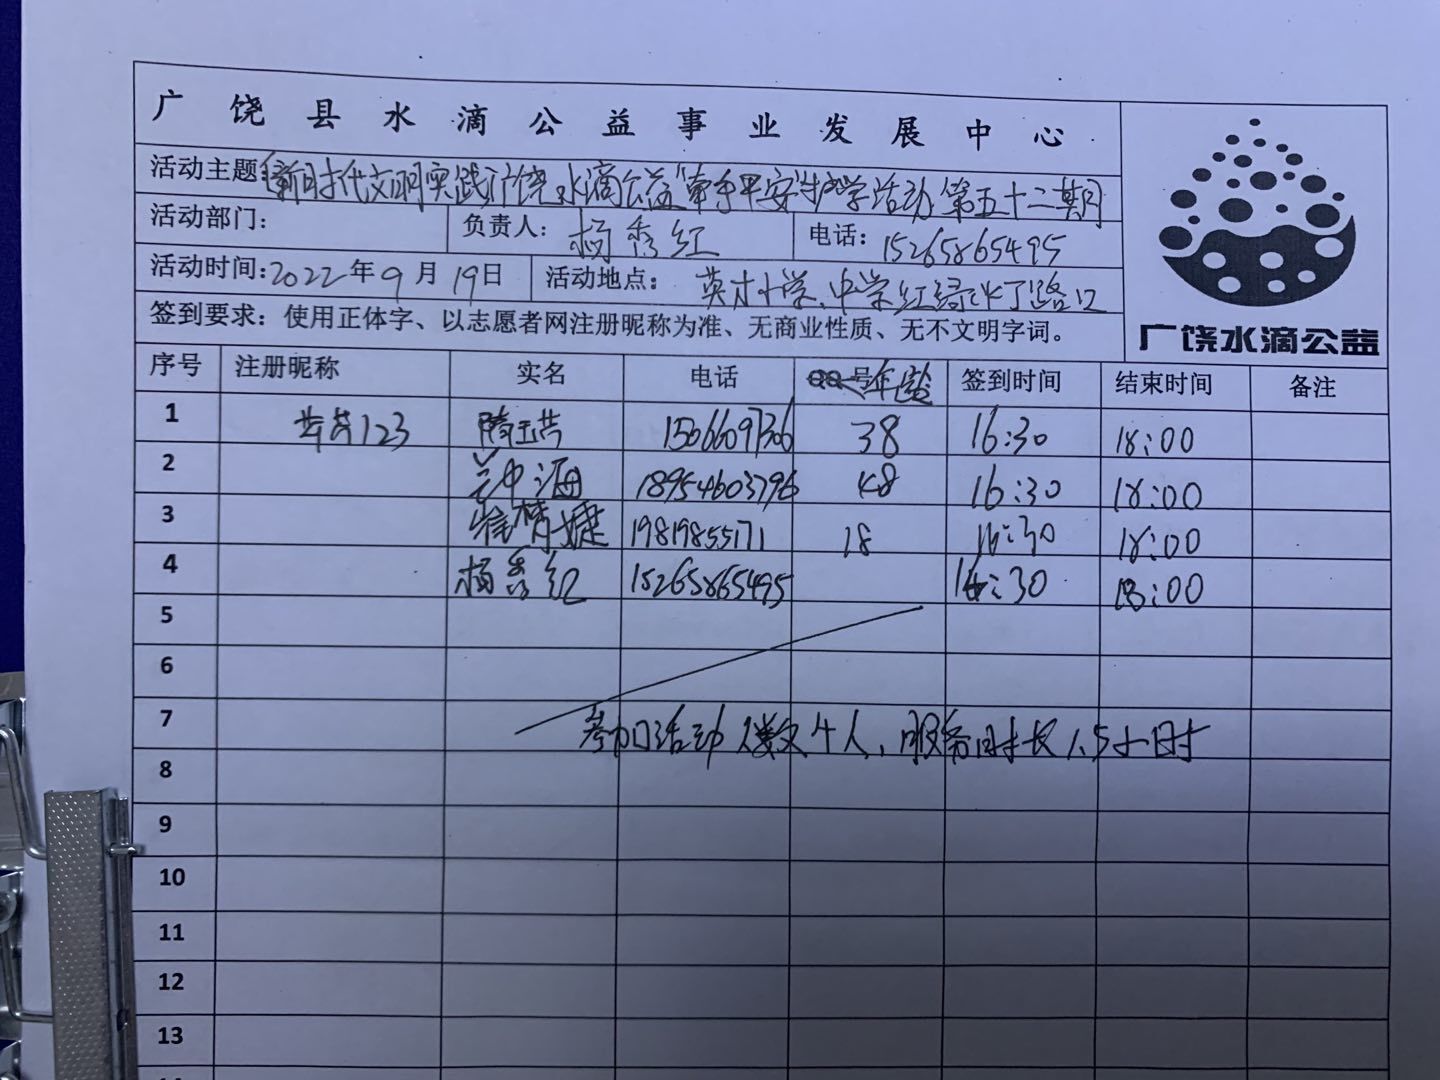 广饶县水滴公益事业发展中心
活动主题:新时代文明实践广饶水滴公益"牵手平安"护学活动第五十二期
活动部门: 负责人: 杨秀红 电话: 15265865495
活动时间:2022年9月19日 活动地点: 英才小学、中学红绿灯路口
签到要求: 使用正体字、以志愿者网注册昵称为准、无商业性质、无不文明字词。
广饶水滴公益
序号 注册昵称 实名 电话 号年龄 签到时间 结束时间 备注
1 芸芸123 15066097306 38 16:30 18:00
2 18954603796 48 16:30 18:00
3 19819855171 18 16:30 18:00
4 杨秀红 15265865495 16:30 18:00
5
6
7
参加活动人数4人、服务时长1.5小时
8
9
10
11
12
13